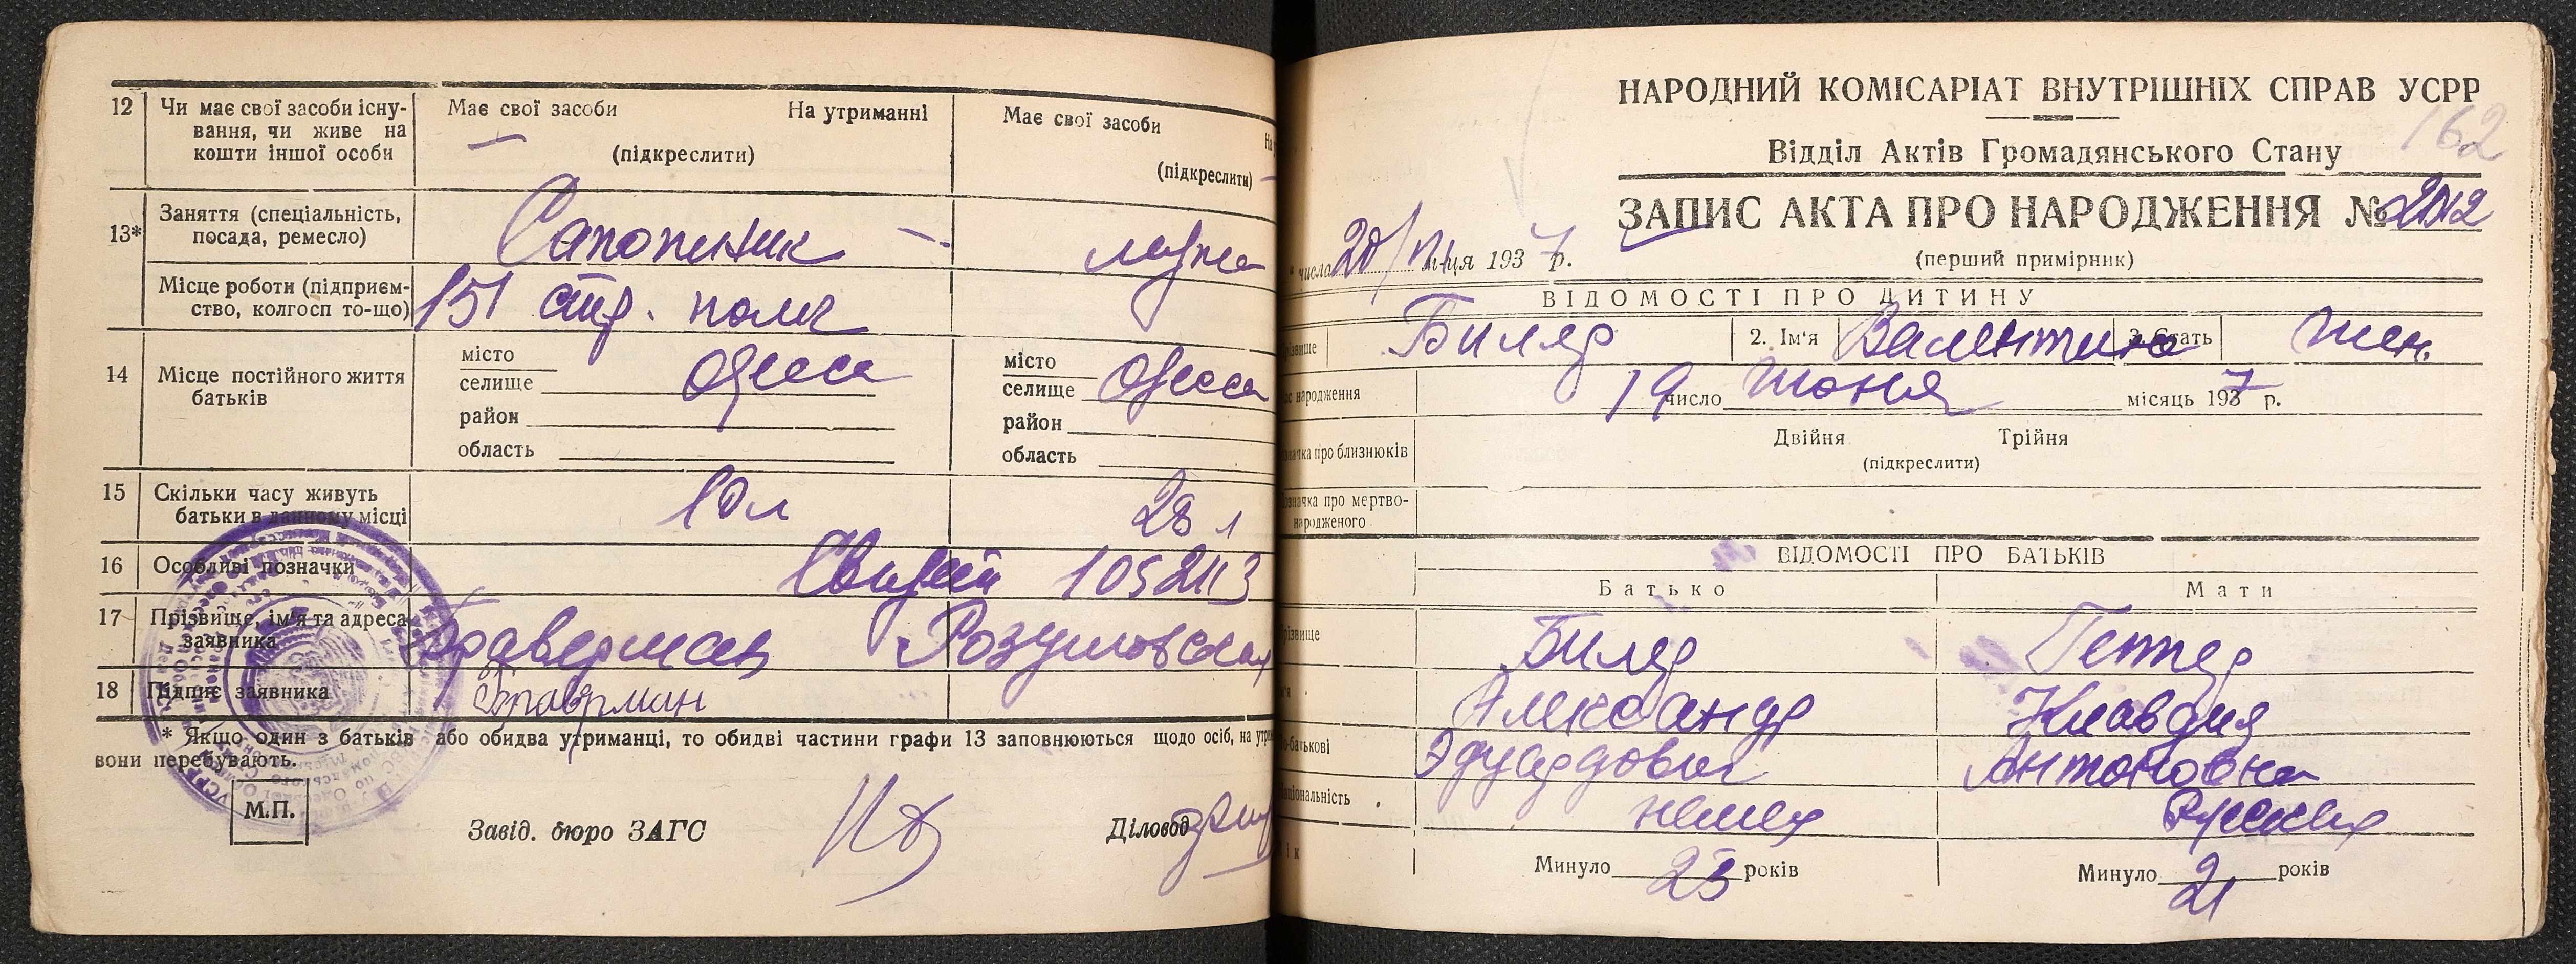 12 Чи має свої засоби існу-
вання, чи живе на
кошти іншої особи
Має свої засоби На утриманні
(підкреслити)
Має свої засоби
(підкреслити)
13* Заняття (спеціальність,
посада, ремесло)
Сапожник
мужа
Місце роботи (підприєм-
ство, колгосп то-що)
151 стр. полк
14 Місце постійного життя
батьків
місто
селище Одесса
район
область
місто
селище Одесса
район
область
15 Скільки часу живуть
батьки в данному місці
10 л
28 л
16 Особливі позначки
1052113
17 Прізвище, ім'я та адреса
заявника
Браверман Розумовская
18 Підпис заявника
Браверман
* Якщо один з батьків або обидва утриманці, то обидві частини графи 13 заповнюються щодо осіб, на
вони перебувають.
М.П.
Завід. бюро ЗАГС
Діловод
НАРОДНИЙ КОМІСАРІАТ ВНУТРІШНІХ СПРАВ УСРР
162
Відділ Актів Громадянського Стану
ЗАПИС АКТА ПРО НАРОДЖЕННЯ № 2012
(перший примірник)
числа 20/VI м-ця 1937 р.
ВІДОМОСТІ ПРО ДИТИНУ
Билер 2. Ім'я Валентина 3. Стать жен.
народження 19 число июня місяць 1937 р.
про близнюків
Двійня Трійня
(підкреслити)
про мертво-
народженого
ВІДОМОСТІ ПРО БАТЬКІВ
Батько Мати
Билер Геппер
Александр Клавдия
Эдуардович Антоновна
немец
Минуло 23 років
Минуло 21 років